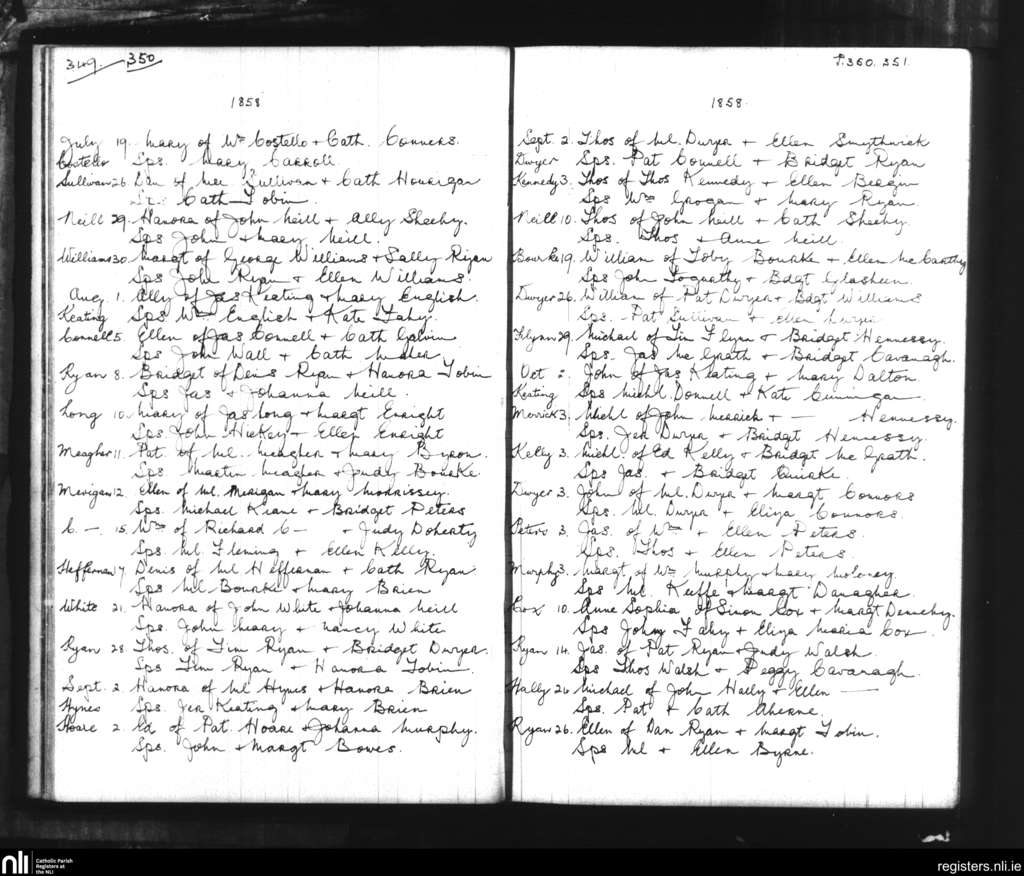 349. 350
1858
July 19. Mary of Wm Costello + Cath. Connors.
Costello Sps. Mary Carroll.
Sullivan 26. Dan of Sullivan + Cath Hourigan
Sp. Cath Tobin.
Neill 29. Hanora of John Neill + Ally Sheehy.
Sps John + Mary Neill.
Williams 30. Margt of George Williams + Sally Ryan
Sps John Ryan + Ellen Williams.
Aug. 1. Ally of Jas Keating + Mary English.
Keating Sps Wm English + Kate Fahy.
Connell 5. Ellen of Jas Connell + Cath Galvin
Sps John Wall + Cath
Ryan 8. Bridget of Denis Ryan + Hanora Tobin
Sps Jas + Johanna Neill.
Long 10. Mary of Jas Long + Margt Enright
Sps. John Hickey + Ellen Enright
Meagher 11. Pat. of Ml. Meagher + Mary Byron.
Sps Martin Meagher + Judy Bourke.
Merigan 12. Ellen of Ml. Merigan + Mary Morrissey.
Sps. Michael Keane + Bridget Peters
C — 15. Wm of Richard C — + Judy Doherty
Sps. Ml. Fleming + Ellen Kelly.
Heffernan 17 Denis of Ml Heffernan + Cath Ryan
Sps Ml Bourke + Mary Brien
White 21. Hanora of John White + Johanna Neill
Sps. John Meary + Nancy White
Ryan 28. Thos. of Tim Ryan + Bridget Dwyer.
Sps Tim Ryan + Hanora Tobin.
Sept. 2. Hanora of Ml Hynes + Hanora Brien
Hynes Sps. Jer Keating + Mary Brien
Hoare 2. Ed of Pat. Hoare + Johanna Murphy.
Sps. John + Margt Bowes.
P. 360. 351.
1858.
Sept. 2. Thos of Ml. Dwyer + Ellen Smythwick
Dwyer Sps. Pat Connell + Bridget Ryan
Kennedy 3. Thos of Thos Kennedy + Ellen Bergin
Sps Wm Grogan + Mary Ryan.
Neill 10. Thos of John Neill + Cath Sheehy.
Sps. Thos + Anne Neill.
Bourke 19. William of Toby Bourke + Ellen McCarthy
Sps John Fogarty + Bdgt Glasheen.
Dwyer 26. William of Pat Dwyer + Bdgt Williams
Sps. Pat Sullivan + Ellen Dwyer
Flynn 29. Michael of Tim Flynn + Bridget Hennessy.
Sps. Jas McGrath + Bridget Cavanagh.
Oct 2. John of Jas Keating + Mary Dalton.
Keating Sps Michl. Donnell + Kate Cunningan.
Merrick 3. Michl of John Merrick + — Hennessy.
Sps. Jer Dwyer + Bridget Hennessy.
Kelly 3. Michl. of Ed Kelly + Bridget McGrath.
Sps Jas. + Bridget Quirke.
Dwyer 3. John of Ml. Dwyer + Margt Connors
Sps. Ml. Dwyer + Eliza Connors.
Peters 3. Jas. of Wm + Ellen Peters.
Sps. Thos + Ellen Peters.
Murphy 3. Margt of Wm Murphy + Mary Moloney.
Sps Ml. Keiffe + Margt Danagher.
Cox 10. Anne Sophia of Simon Cox + Margt Dennehy.
Sps John Fahy + Eliza Maria Cox.
Ryan 14. Jas. of Pat Ryan + Judy Walsh.
Sps Thos Walsh + Peggy Cavanagh.
Hally 26 Michael of John Hally + Ellen —
Sps. Pat + Cath Aherne.
Ryan 26. Ellen of Dan Ryan + Margt Tobin.
Sps Ml + Ellen Byrne.
nli Catholic Parish
Registers at
the NLI
registers.nli.ie